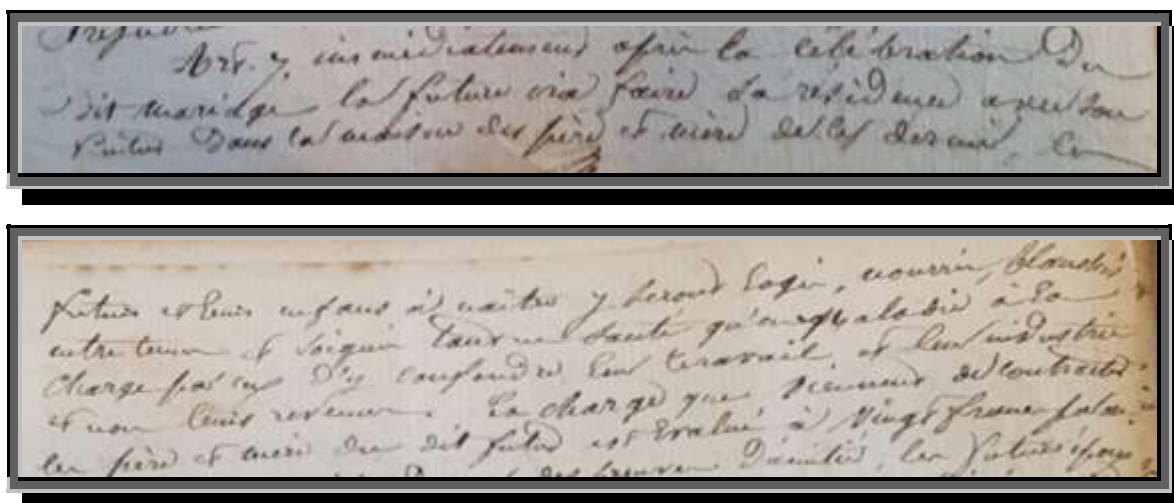 Art. 7. immédiatement après la célébration Du
Dit mariage la future ira faire sa résidence avec son
futur Dans la maison des père et mère de ce dernier, les
futurs et leurs enfans à naître y seront logés, nourris, blanchis
entretenus et soignés tant en santé qu'en maladie à la
charge par eux D'y confondre leur travail et leur industrie
et non leurs revenus. La charge que viennent de contracter
les père et mère du dit futur est évalué à vingt francs
D'amitié, les futurs époux